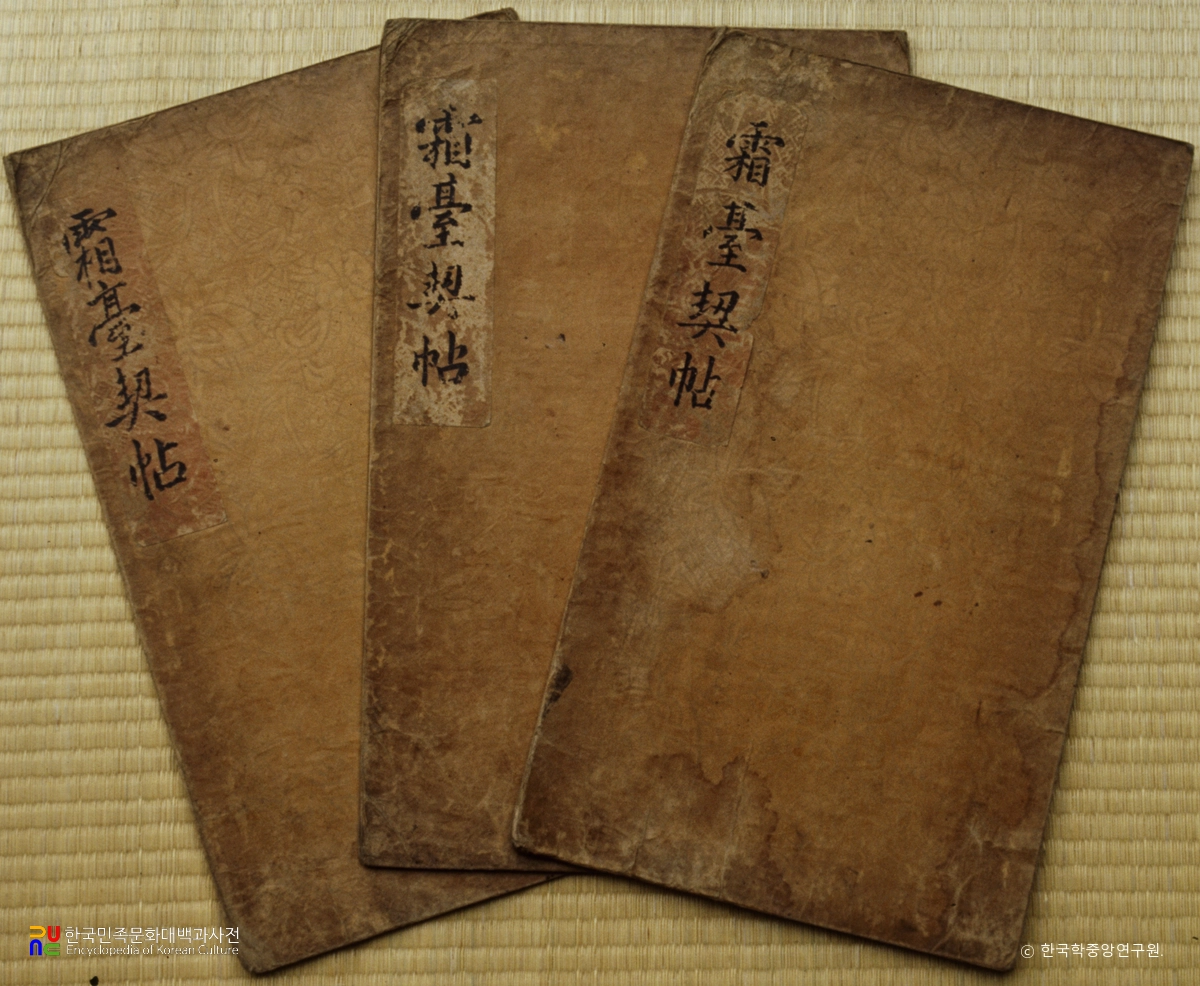 霜臺契帖
霜臺契帖
霜臺契帖
한국민족문화대백과사전
Encyclopedia of Korean Culture
ⓒ 한국학중앙연구원.